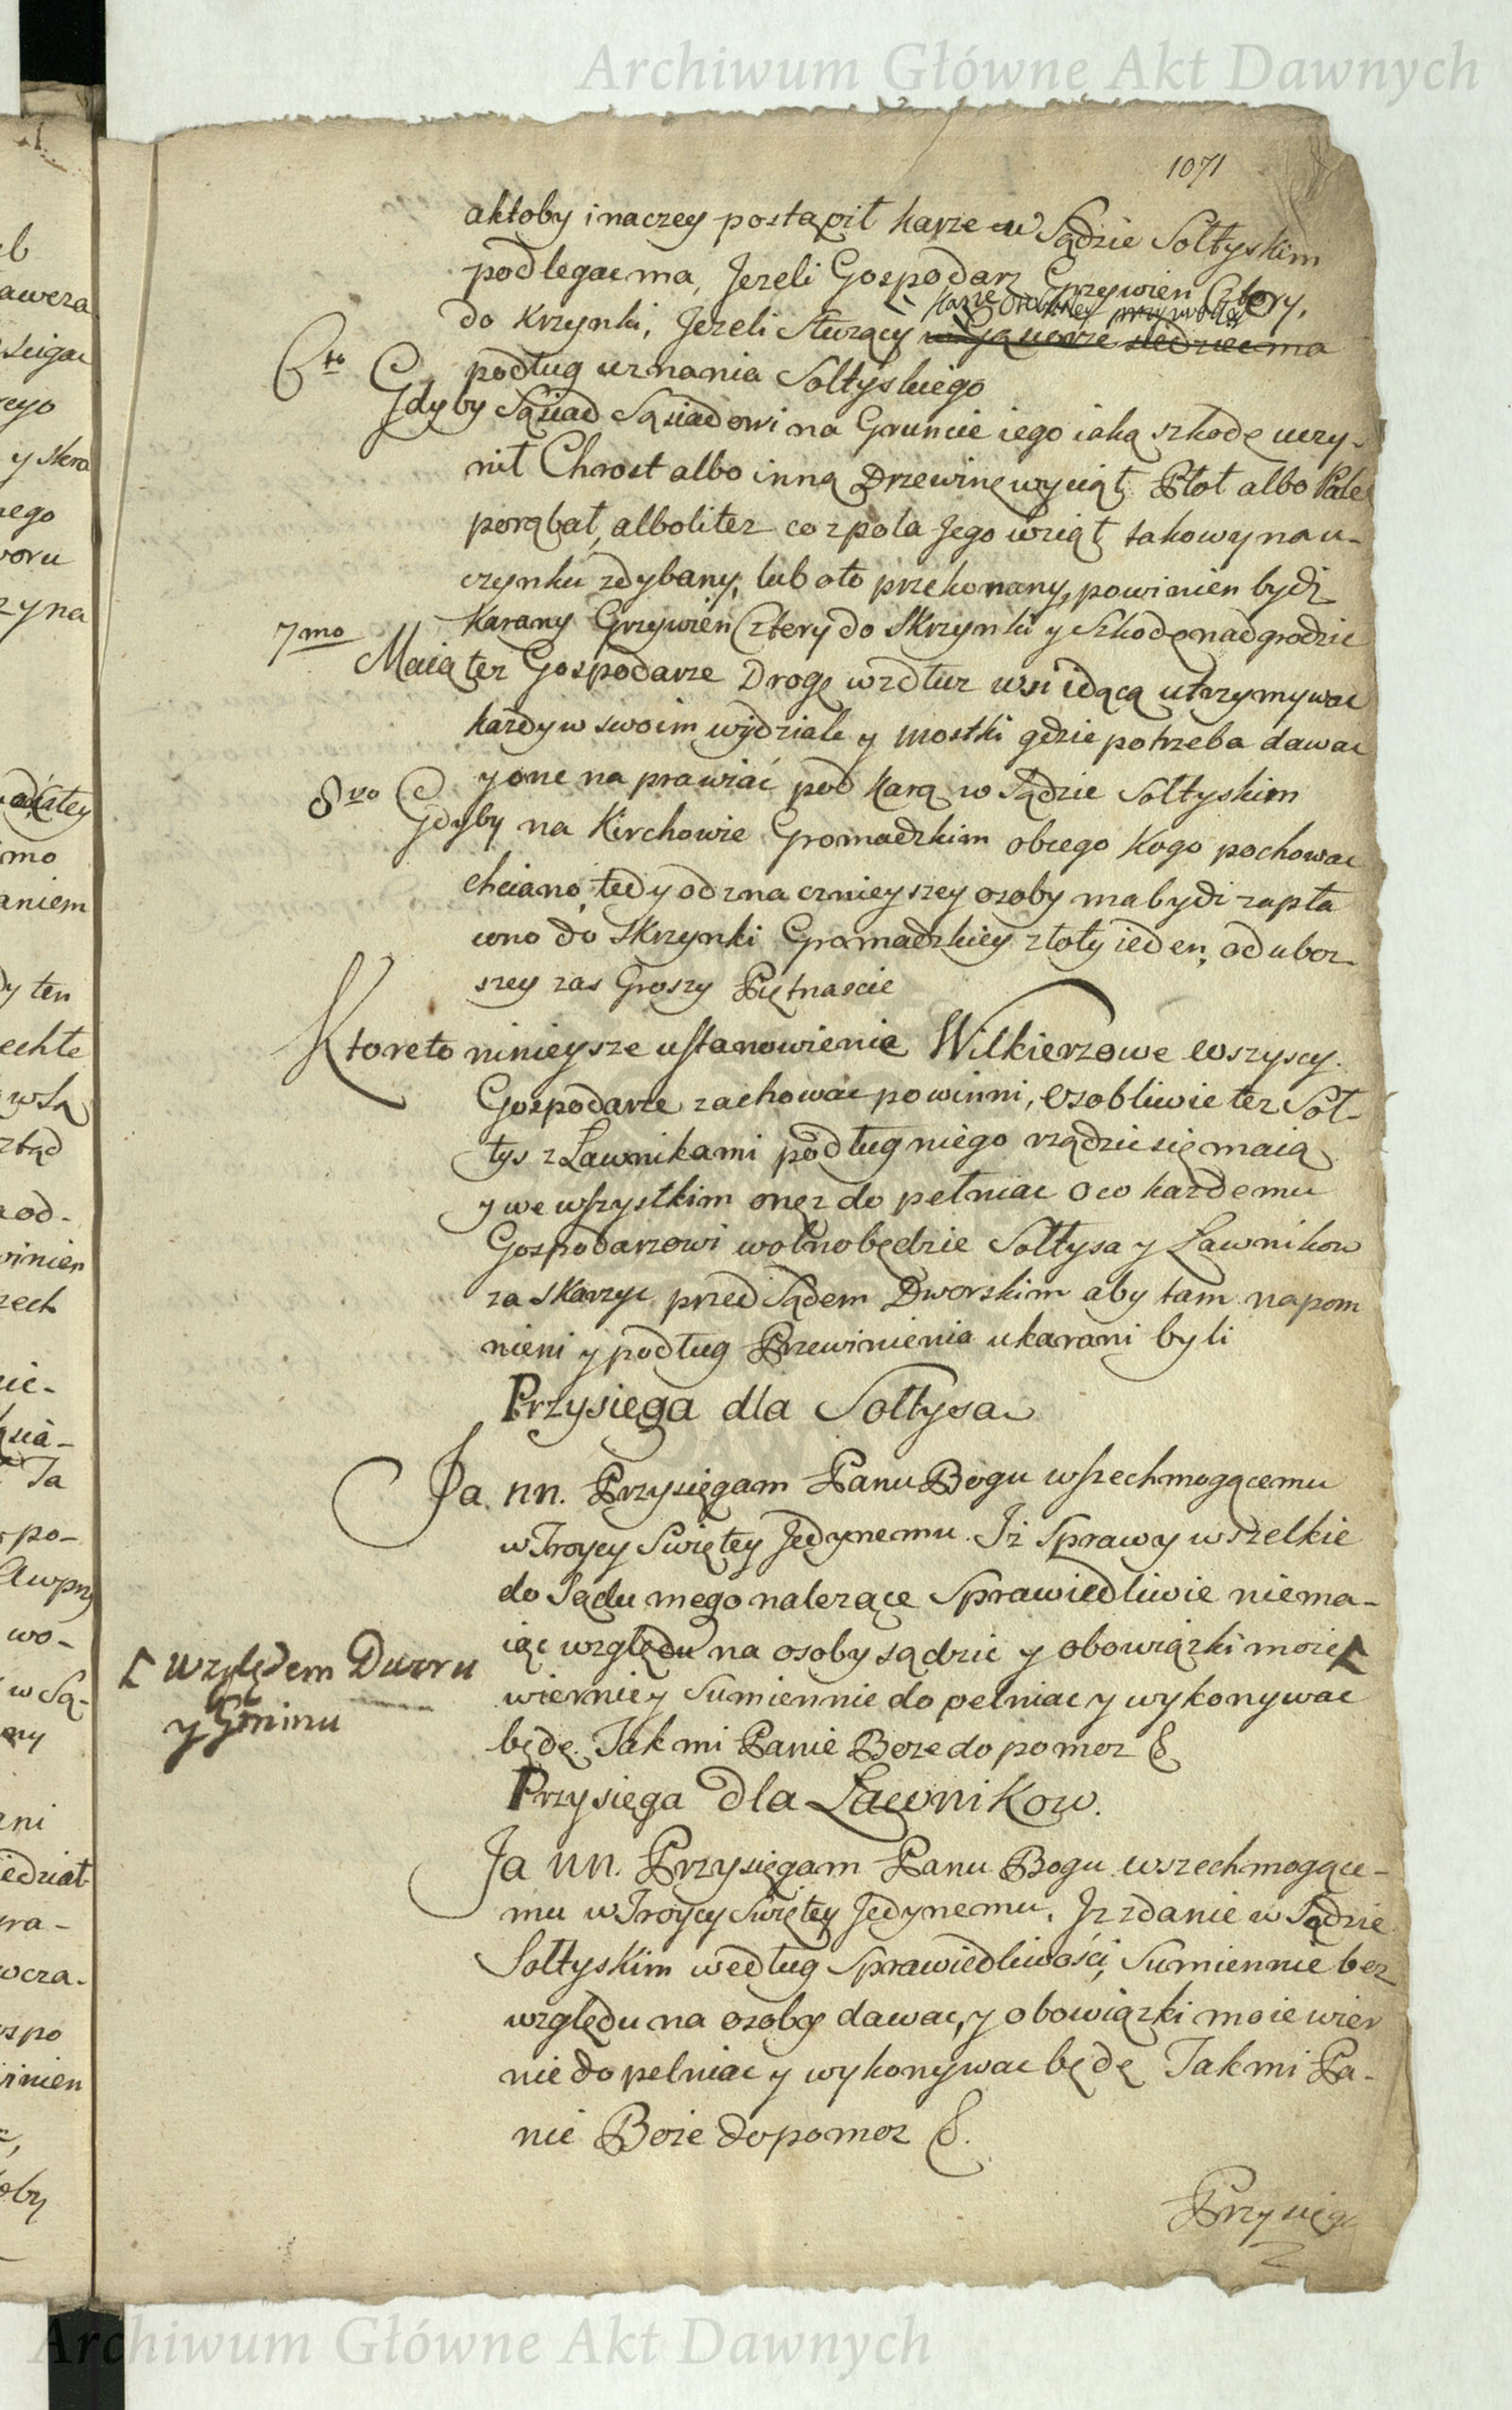 Archiwum Główne Akt Dawnych
1071
aktoby inaczey postąpił karze w Sądzie Sołtyskim
podlegac ma, Jezeli Gospodarz Grzywien Cztery,
karze
do Krzynki, Jezeli Sturzący siedziec ma
podług uznania Sołtyskiego
6to Gdyby Sąsiad Sąsiadowi na Gruncie iego iaką szkodę uczy-
nił Chrost albo inną Drzewinę wyciął, Płot albo Pale
porąbał, albolitez co z pola Jego wziął takowy na u-
czynku zdybany, lub oto przekonany, powinien bydź
Karany Grzywien Cztery do Skrzynki y Szkodę nadgrodzic
7mo Maią tez Gospodarze Drogę wzdłuz wsi idącą utrzymywac
kazdy w swoim wydziale y mostki gdzie potrzeba dawac
y one naprawiać pod karą w Sądzie Sołtyskim
8vo Gdyby na Kirchowie Gromadzkim obcego kogo pochowac
chciano, tedy od znacznieyszey osoby ma bydź zapła
cono do Skrzynki Gromadzkiey złoty ieden, od uboz-
szey zas Groszy Piętnascie
Ktoreto ninieysze ustanowienie Wilkierzowe wszyscy
Gospodarze zachowac powinni, Osobliwie tez Soł-
tys z Ławnikami podług niego rządzic się maią
y we wszystkim onez dopełniac o co kazdemu
Gospodarzowi wolno będzie Sołtysa y Ławnikow
zaskarzyc przed Sądem Dworskim aby tam napom
nieni y podług Przewinienia ukarani byli
Przysięga dla Sołtysa
Ja nn. Przysięgam Panu Bogu wszechmogącemu
w Troycy Swiętey Jedynemu. Iż Sprawy wszelkie
do Sądu mego nalezące Sprawiedliwie niema-
iąc względu na osoby sądzic y obowiązki moie
względem Dworu
y Gminu
wiernie y Sumiennie dopełniac y wykonywac
będę. Tak mi Panie Boze dopomoz &
Przysięga dla Ławnikow.
Ja nn. Przysięgam Panu Bogu wszechmogące-
mu w Troycy Swiętey Jedynemu, Jz zdanie w Sądzie
Sołtyskim według Sprawiedliwości, Sumiennie bez
względu na osoby dawac, y obowiązki moie wier
nie dopełniac y wykonywac będę Tak mi Pa-
nie Boze dopomoz &.
Przysięga
Archiwum Główne Akt Dawnych